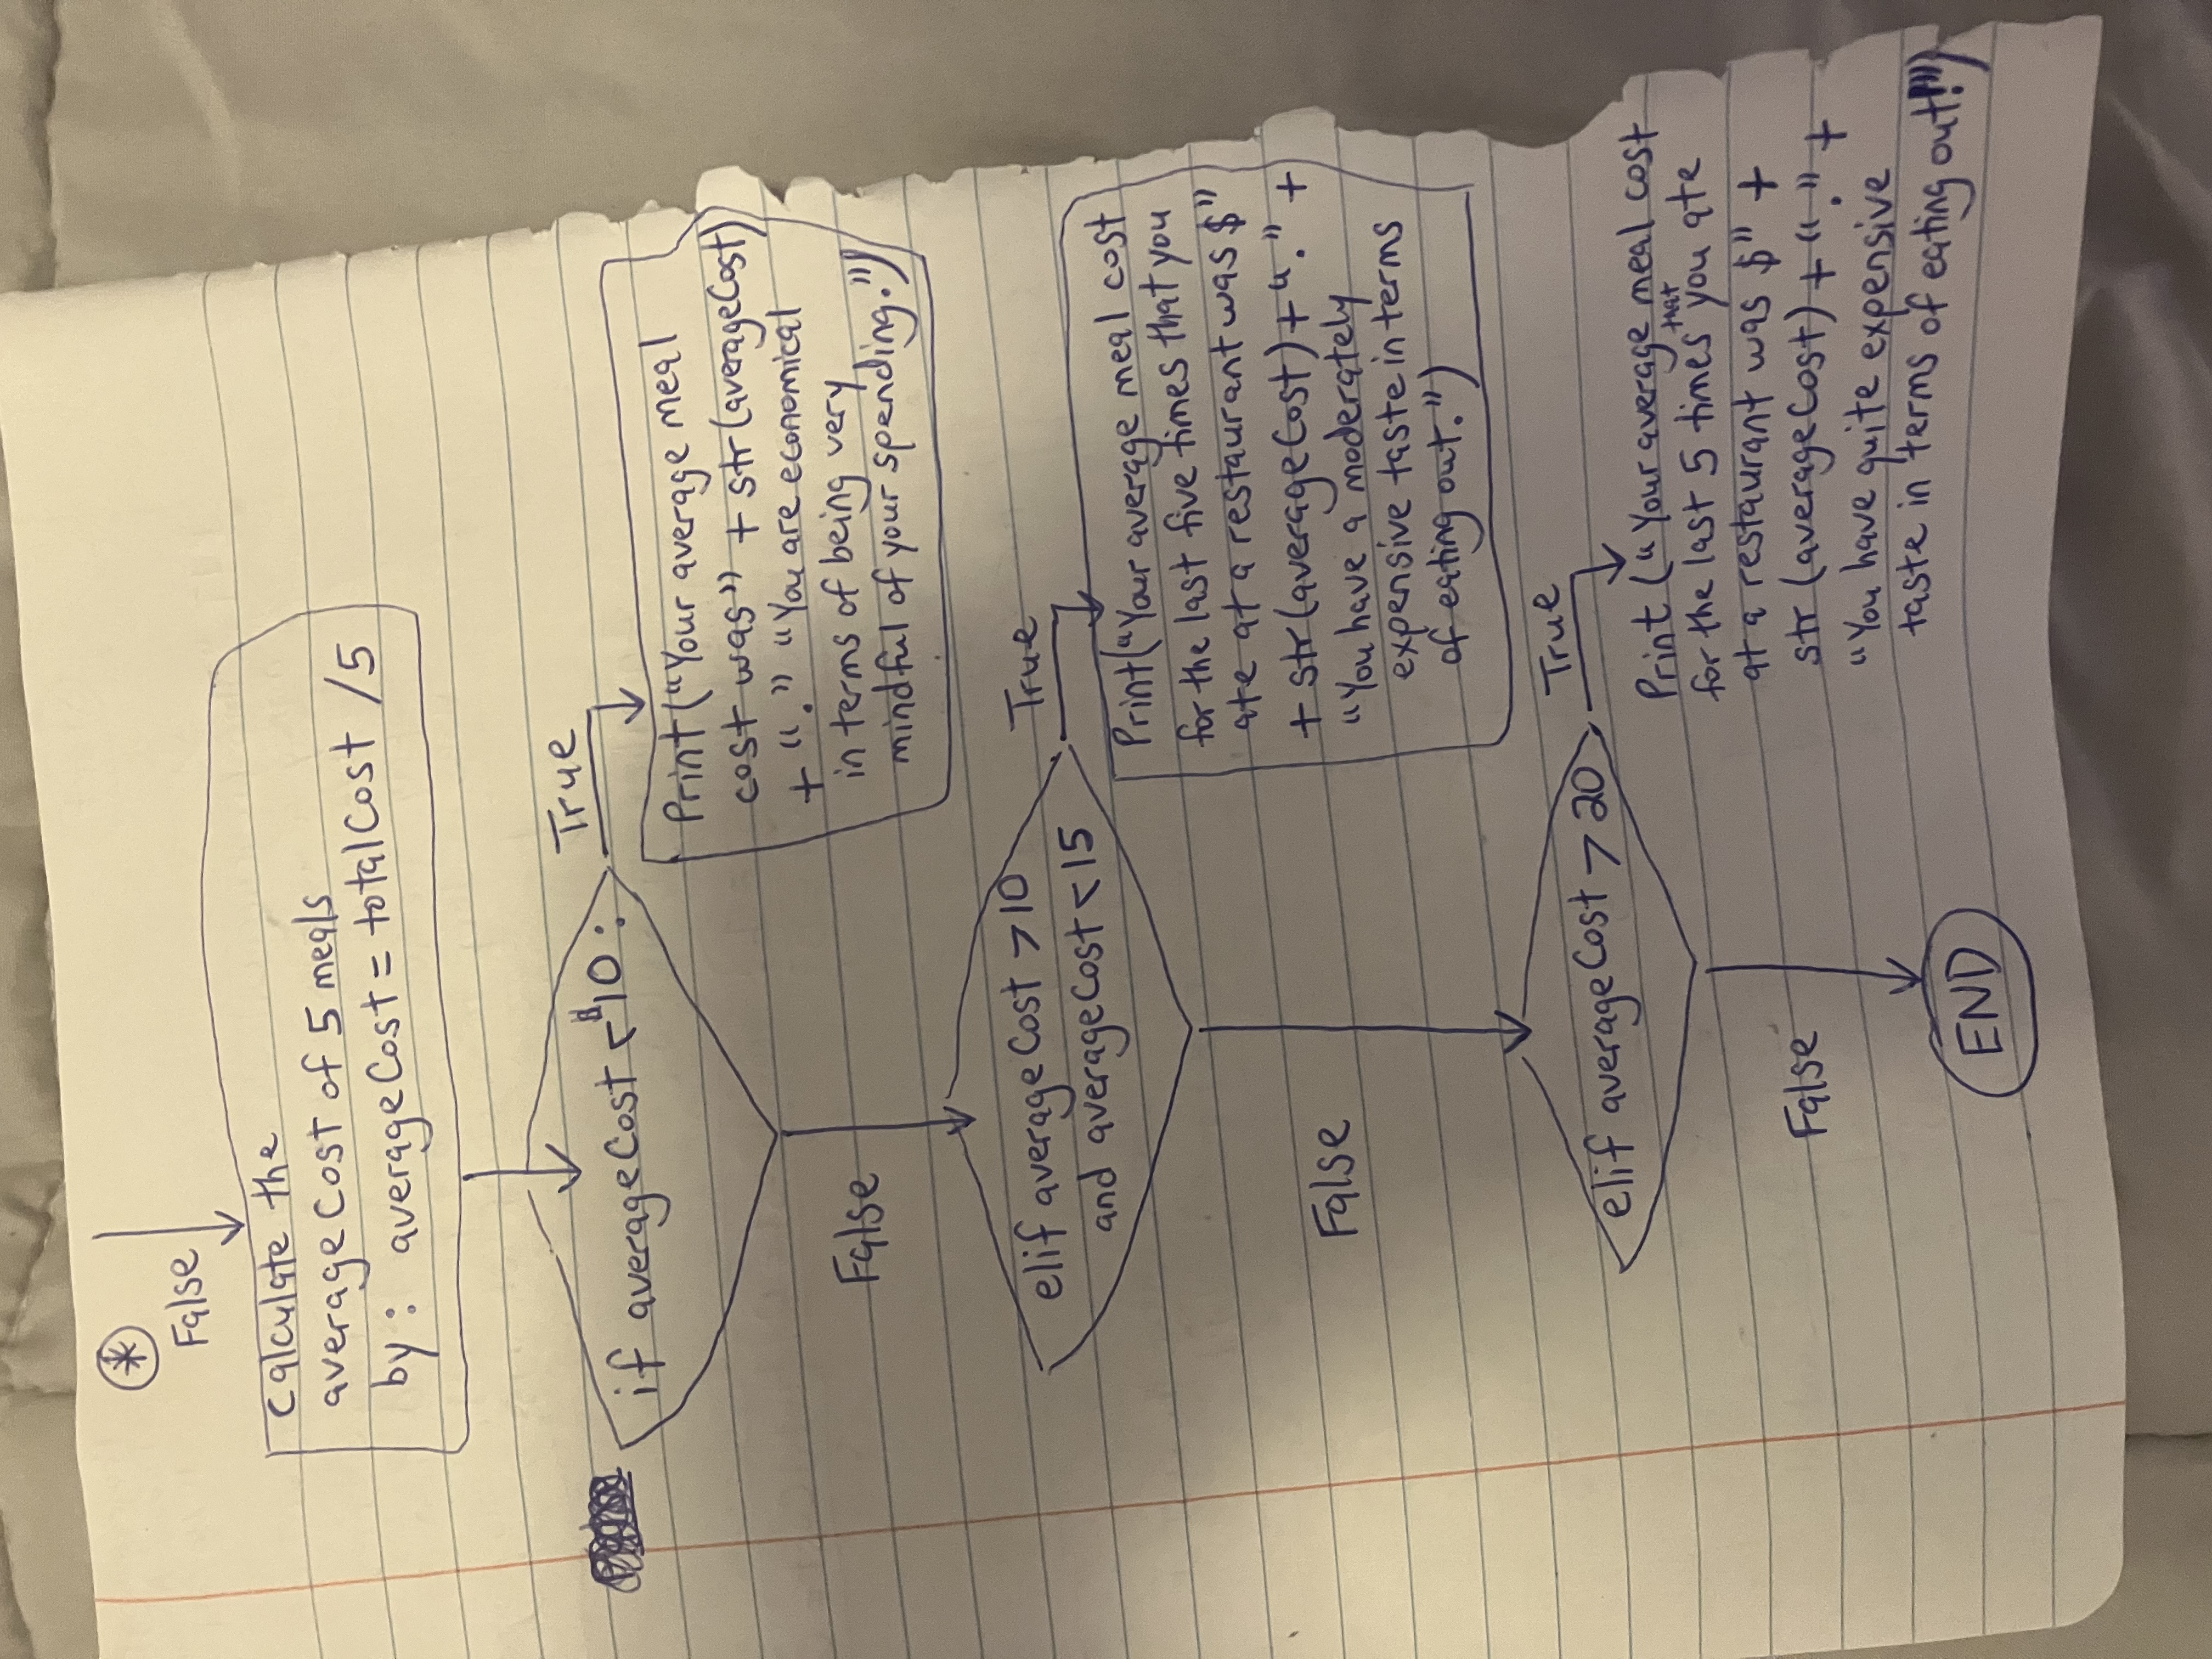 *
False
Calculate the
averageCost of 5 meals
by: averageCost = totalCost / 5
if averageCost < 10:
True
Print("Your average meal
cost was" + str(averageCost)
+ "." "You are economical
in terms of being very
mindful of your spending.")
False
elif averageCost > 10
and averageCost < 15
True
Print("Your average meal cost
for the last five times that you
ate at a restaurant was $"
+ str(averageCost) + "." +
"You have a moderately
expensive taste in terms
of eating out.")
False
elif averageCost > 20
True
Print ("Your average meal cost
for the last 5 times that you ate
at a restaurant was $" +
str (averageCost) + "." +
"You have quite expensive
taste in terms of eating out!")
False
END